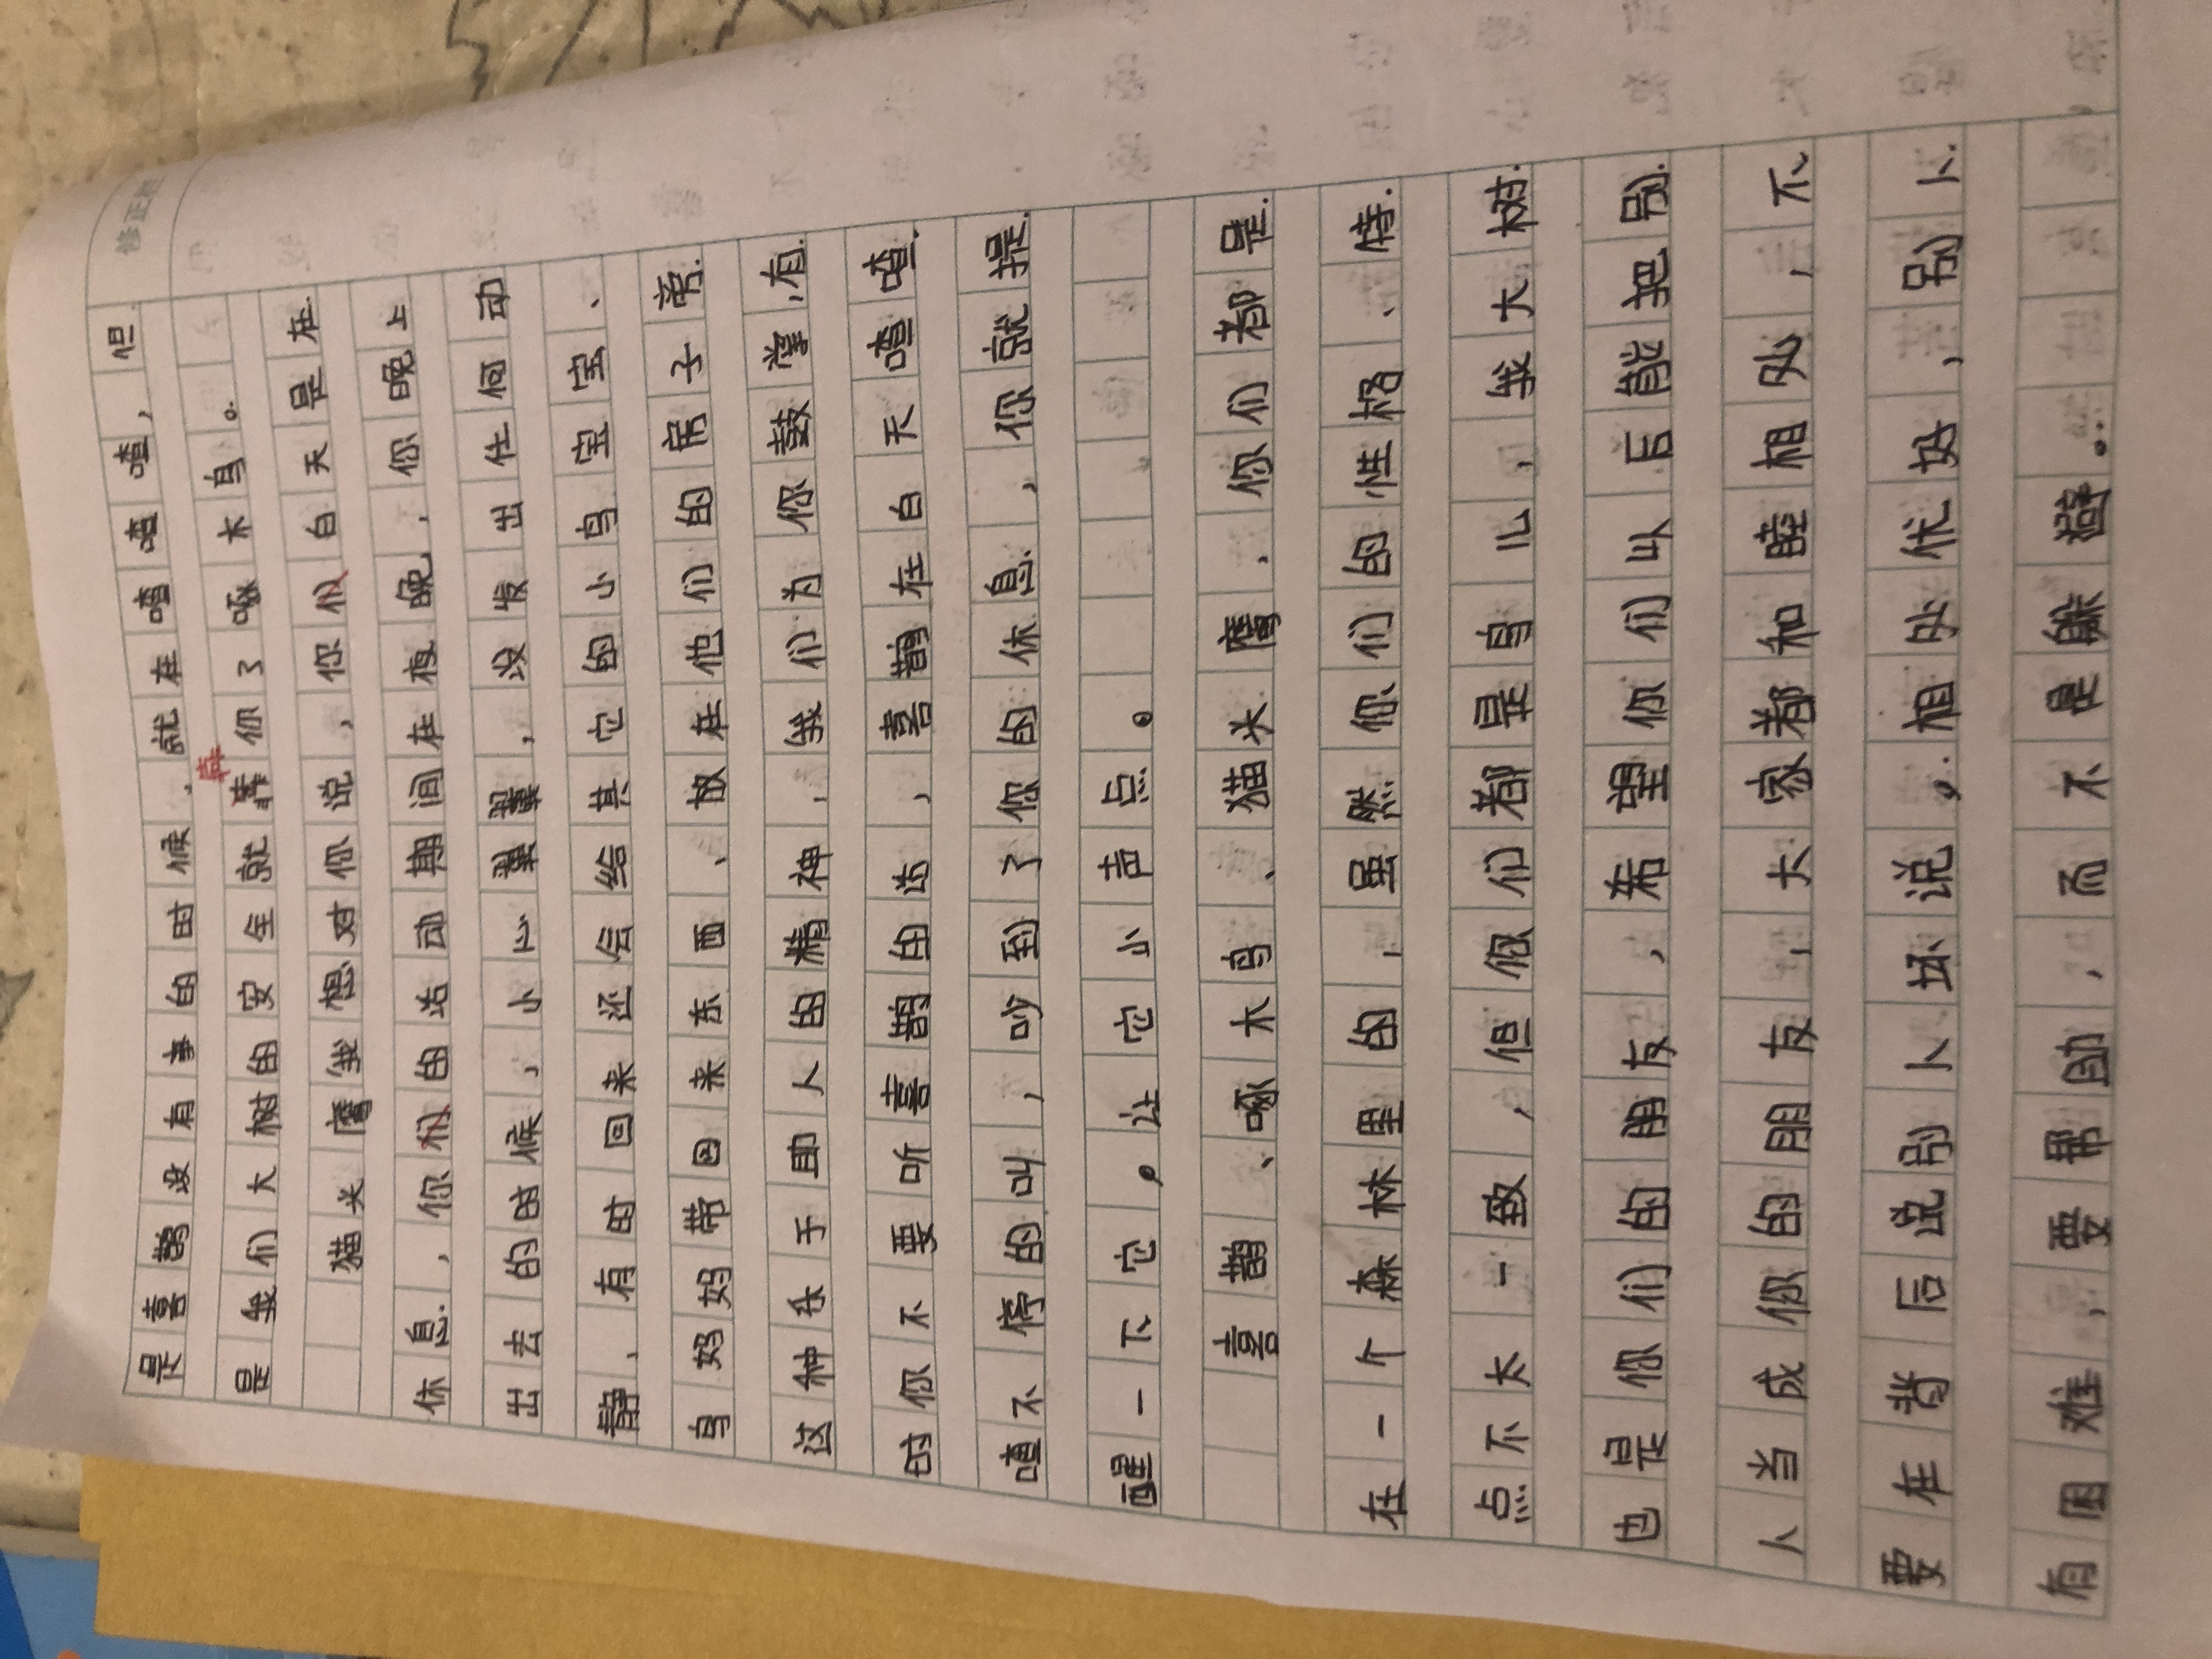 修正
是喜鹊没有事的时候，就在喳喳喳，但
是我们大树的安全就靠你了啄木鸟。
靠
猫头鹰我想对你说，你们白天是在
休息，你们的活动期间在夜晚，你晚上
出去的时候，小心翼翼，没发出任何动
静，有时回来还会给其它的小鸟宝宝、
鸟妈妈带回来东西、放在他们的房子旁
这种乐于助人的精神，我们为你鼓掌，有
时你不要听喜鹊的话，喜鹊在白天喳喳
喳不停的叫，吵到了你的休息，你就提
醒一下它。让它小声点。
喜鹊、啄木鸟、猫头鹰，你们都是
在一个森林里的，虽然你们的性格、特
点不太一致，但你们都是鸟儿，我大树
也是你们的朋友，希望你们以后能把别
人当成你的朋友，大家都和睦相处，不
要在背后说别人坏说。相处优好，别人
有困难，要帮助，而不是躲避。